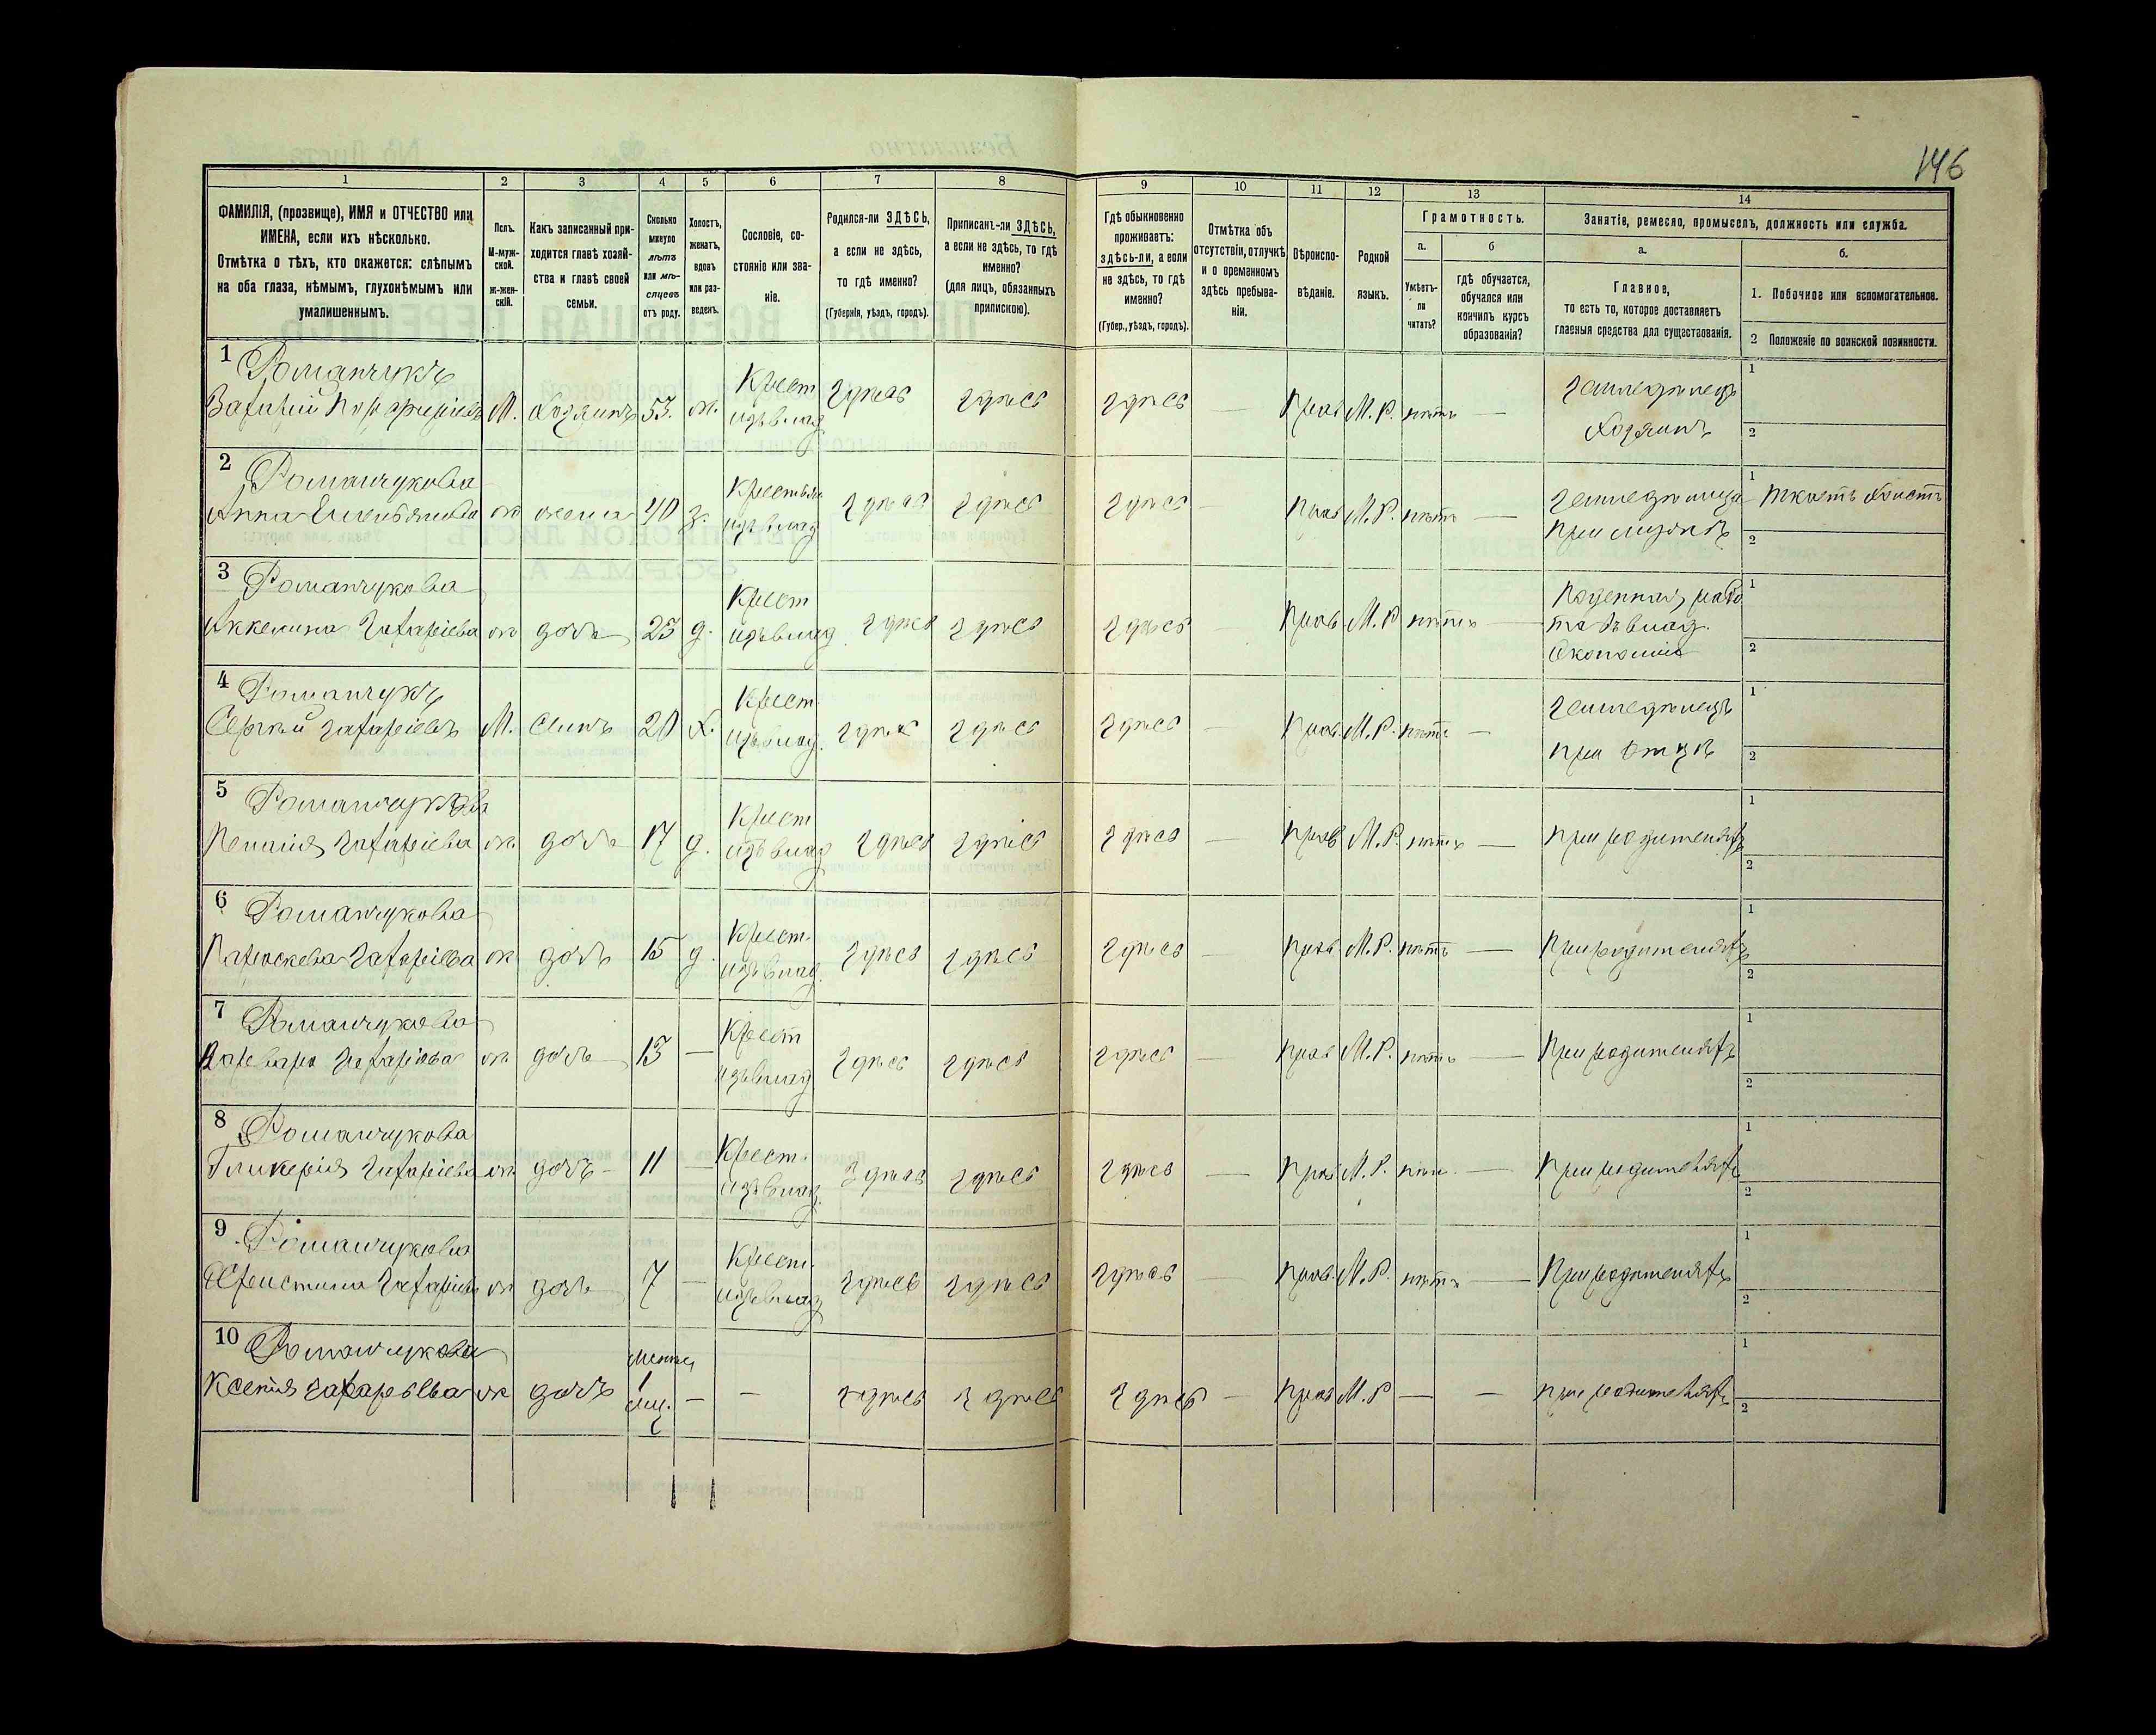 146
1
2
3
4
5
6
7
8
9
10
11
12
13
14
ФАМИЛІЯ, (прозвище), ИМЯ и ОТЧЕСТВО или
ИМЕНА, если ихъ нѣсколько.
Отмѣтка о тѣхъ, кто окажется: слѣпымъ
на оба глаза, нѣмымъ, глухонѣмымъ или
умалишеннымъ.
Полъ.
М-муж-
ской.
Ж-жен-
скій.
Какъ записанный при-
ходится главѣ хозяй-
ства и главѣ своей
семьи.
Сколько
минуло
лѣтъ
или мѣ-
сяцевъ
отъ роду.
Холостъ,
женатъ,
вдовъ
или раз-
веденъ.
Сословіе, со-
стояніе или зва-
ніе.
Родился-ли ЗДѢСЬ,
а если не здѣсь,
то гдѣ именно?
(Губернія, уѣздъ, городъ).
Приписанъ-ли ЗДѢСЬ,
а если не здѣсь, то гдѣ
именно?
(для лицъ, обязанныхъ
припискою).
Гдѣ обыкновенно
проживаетъ:
здѣсь-ли, а если
не здѣсь, то гдѣ
именно?
(Губер., уѣздъ, городъ).
Отмѣтка объ
отсутствіи, отлучкѣ
и о временномъ
здѣсь пребыва-
ніи.
Вѣроиспо-
вѣданіе.
Родной
языкъ.
Грамотность.
а.
Умѣетъ-
ли
читать?
б
гдѣ обучается,
обучался или
кончилъ курсъ
образованія?
Занятіе, ремесло, промыселъ, должность или служба.
а.
Главное,
то есть то, которое доставляетъ
главныя средства для существованія.
б.
1. Побочное или вспомогательное.
2 Положеніе по воинской повинности.
1 Романчукъ
М. Хозяинъ 53. ж. Крест. изъ влад. здѣсь здѣсь здѣсь — Прав. М.Р. нѣтъ —
Земледѣлецъ
Хозяинъ
1
2
2 Романчукова
Анна ж жена 40 з. изъ влад здѣсь здѣсь здѣсь — Прав М.Р. нѣтъ —
при мужѣ
1
2
3 Романчукова
Захаріева ж дочь 23 д. Крест изъ влад здѣсь здѣсь здѣсь — Прав. М.Р нѣтъ —
Поденная рабо
та въ влад.
1
2
4 Романчукъ
Сергѣй Захаріевъ М. Сынъ 20 х. Крест изъ влад. здѣсь здѣсь здѣсь — Прав. М.Р. нѣтъ —
Земледѣлецъ
при отцѣ
1
2
5 Романчукова
Захаріева ж. дочь 17 д. Крест изъ влад здѣсь здѣсь здѣсь — Прав М.Р. нѣтъ — При родителяхъ
1
2
6 Романчукова
Параскева Захаріева ж дочь 15 д. Крест. изъ влад. здѣсь здѣсь здѣсь — Прав. М.Р. нѣтъ — При родителяхъ
1
2
7 Романчукова
Варвара Захаріева ж дочь 13 — Крест изъ влад здѣсь здѣсь здѣсь — Прав М.Р. нѣтъ — При родителяхъ
1
2
8 Романчукова
Гликерія Захаріева ж дочь — 11 — Крест. изъ влад. здѣсь здѣсь здѣсь — Прав М.Р. — При родителяхъ
1
2
9 Романчукова
Христина Захаріева ж дочь 7 — Крест. изъ влад здѣсь здѣсь здѣсь — Прав. М.Р. нѣтъ — При родителяхъ
1
2
10 Романчукова
Ксенія ж дочь 1 — — здѣсь здѣсь здѣсь — Прав М.Р — — при родителяхъ
1
2